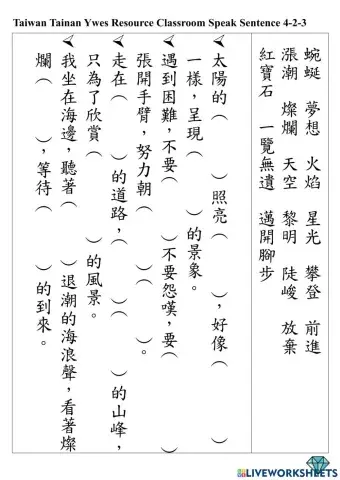 Taiwan Tainan Ywes Resource Classroom Speak Sentence 4-2-3
蜿蜒 夢想 火焰 星光 攀登 前進
漲潮 燦爛 天空 黎明 陡峻 放棄
紅寶石 一覽無遺 邁開腳步
➢ 太陽的（ ）照亮（ ），好像（ ）
一樣，呈現（ ）的景象。
➢ 遇到困難，不要（ ）不要怨嘆，要（ ）
張開手臂，努力朝（ ）（ ）。
➢ 走在（ ）的道路，（ ）（ ）的山峰，
只為了欣賞（ ）的風景。
➢ 我坐在海邊，聽著（ ）退潮的海浪聲，看著燦
爛（ ），等待（ ）的到來。
LIVEWORKSHEETS